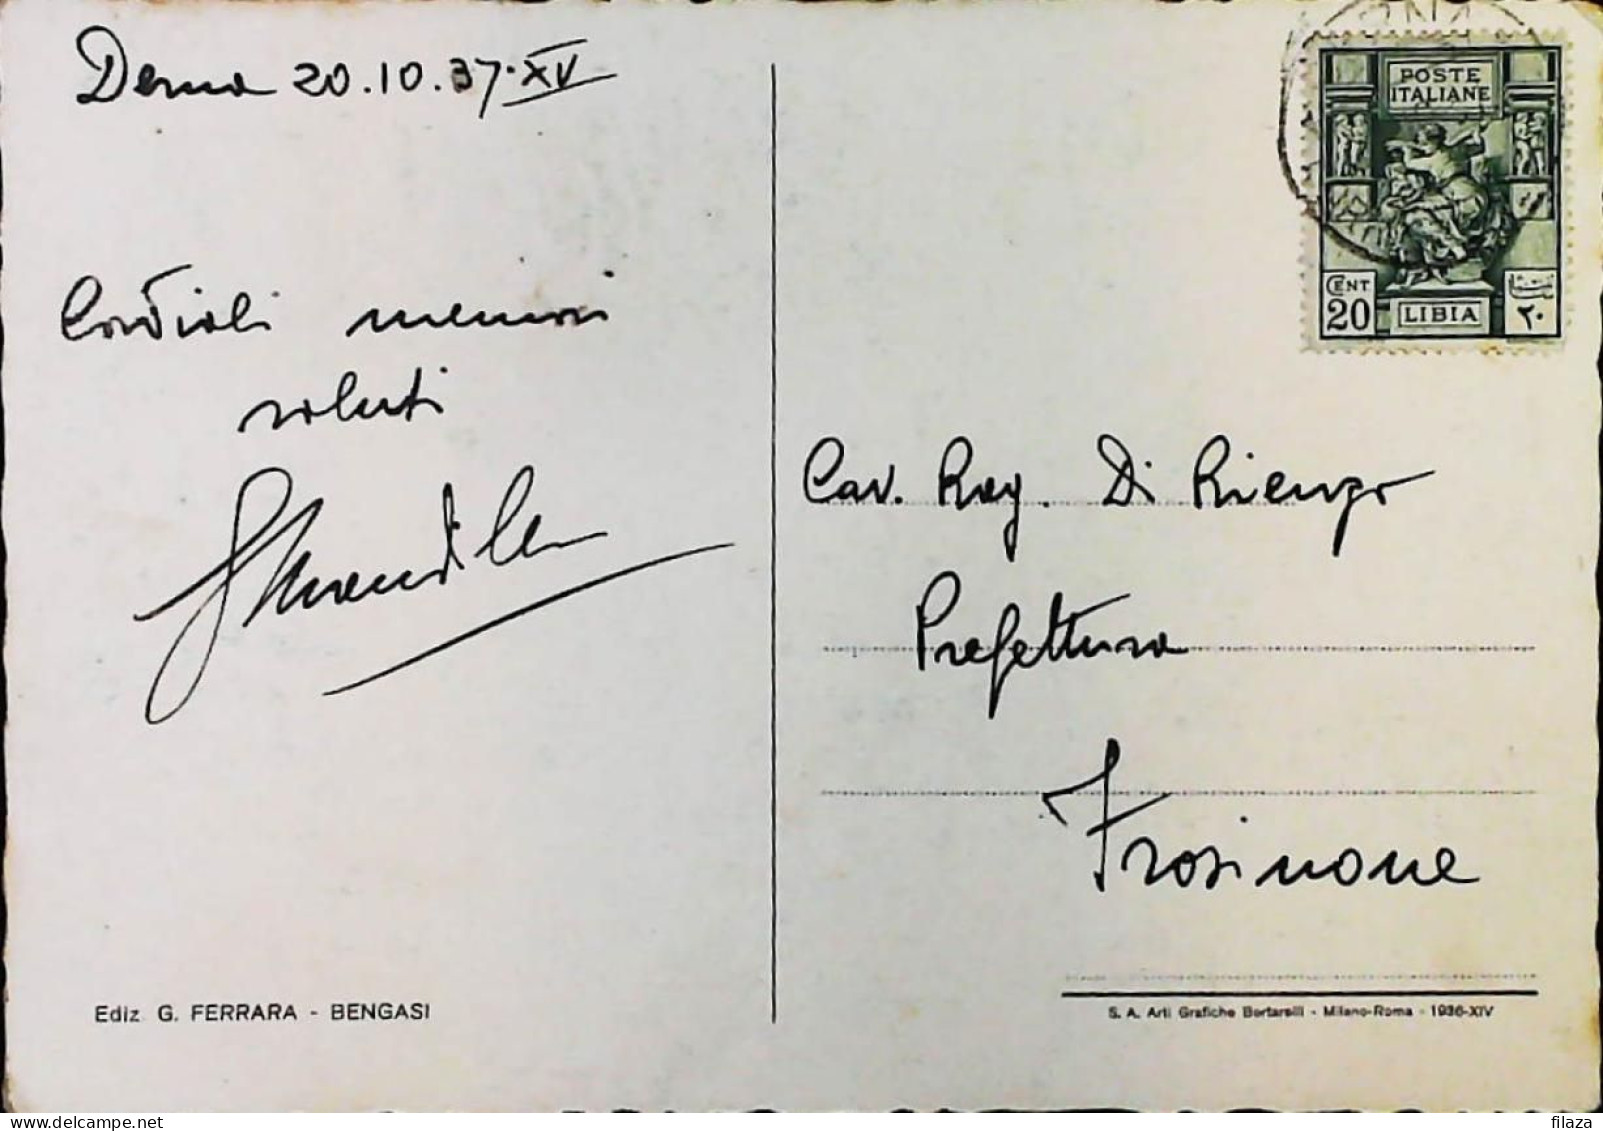 Derna 20.10.37.XV
Cordiali memori
saluti
POSTE
ITALIANE
CENT
20
LIBIA
٢٠
Cav. Rag. Di Rienzo
Prefettura
Frosinone
Ediz. G. FERRARA - BENGASI
S. A. Arti Grafiche Bertarelli - Milano-Roma - 1936-XIV
filaza